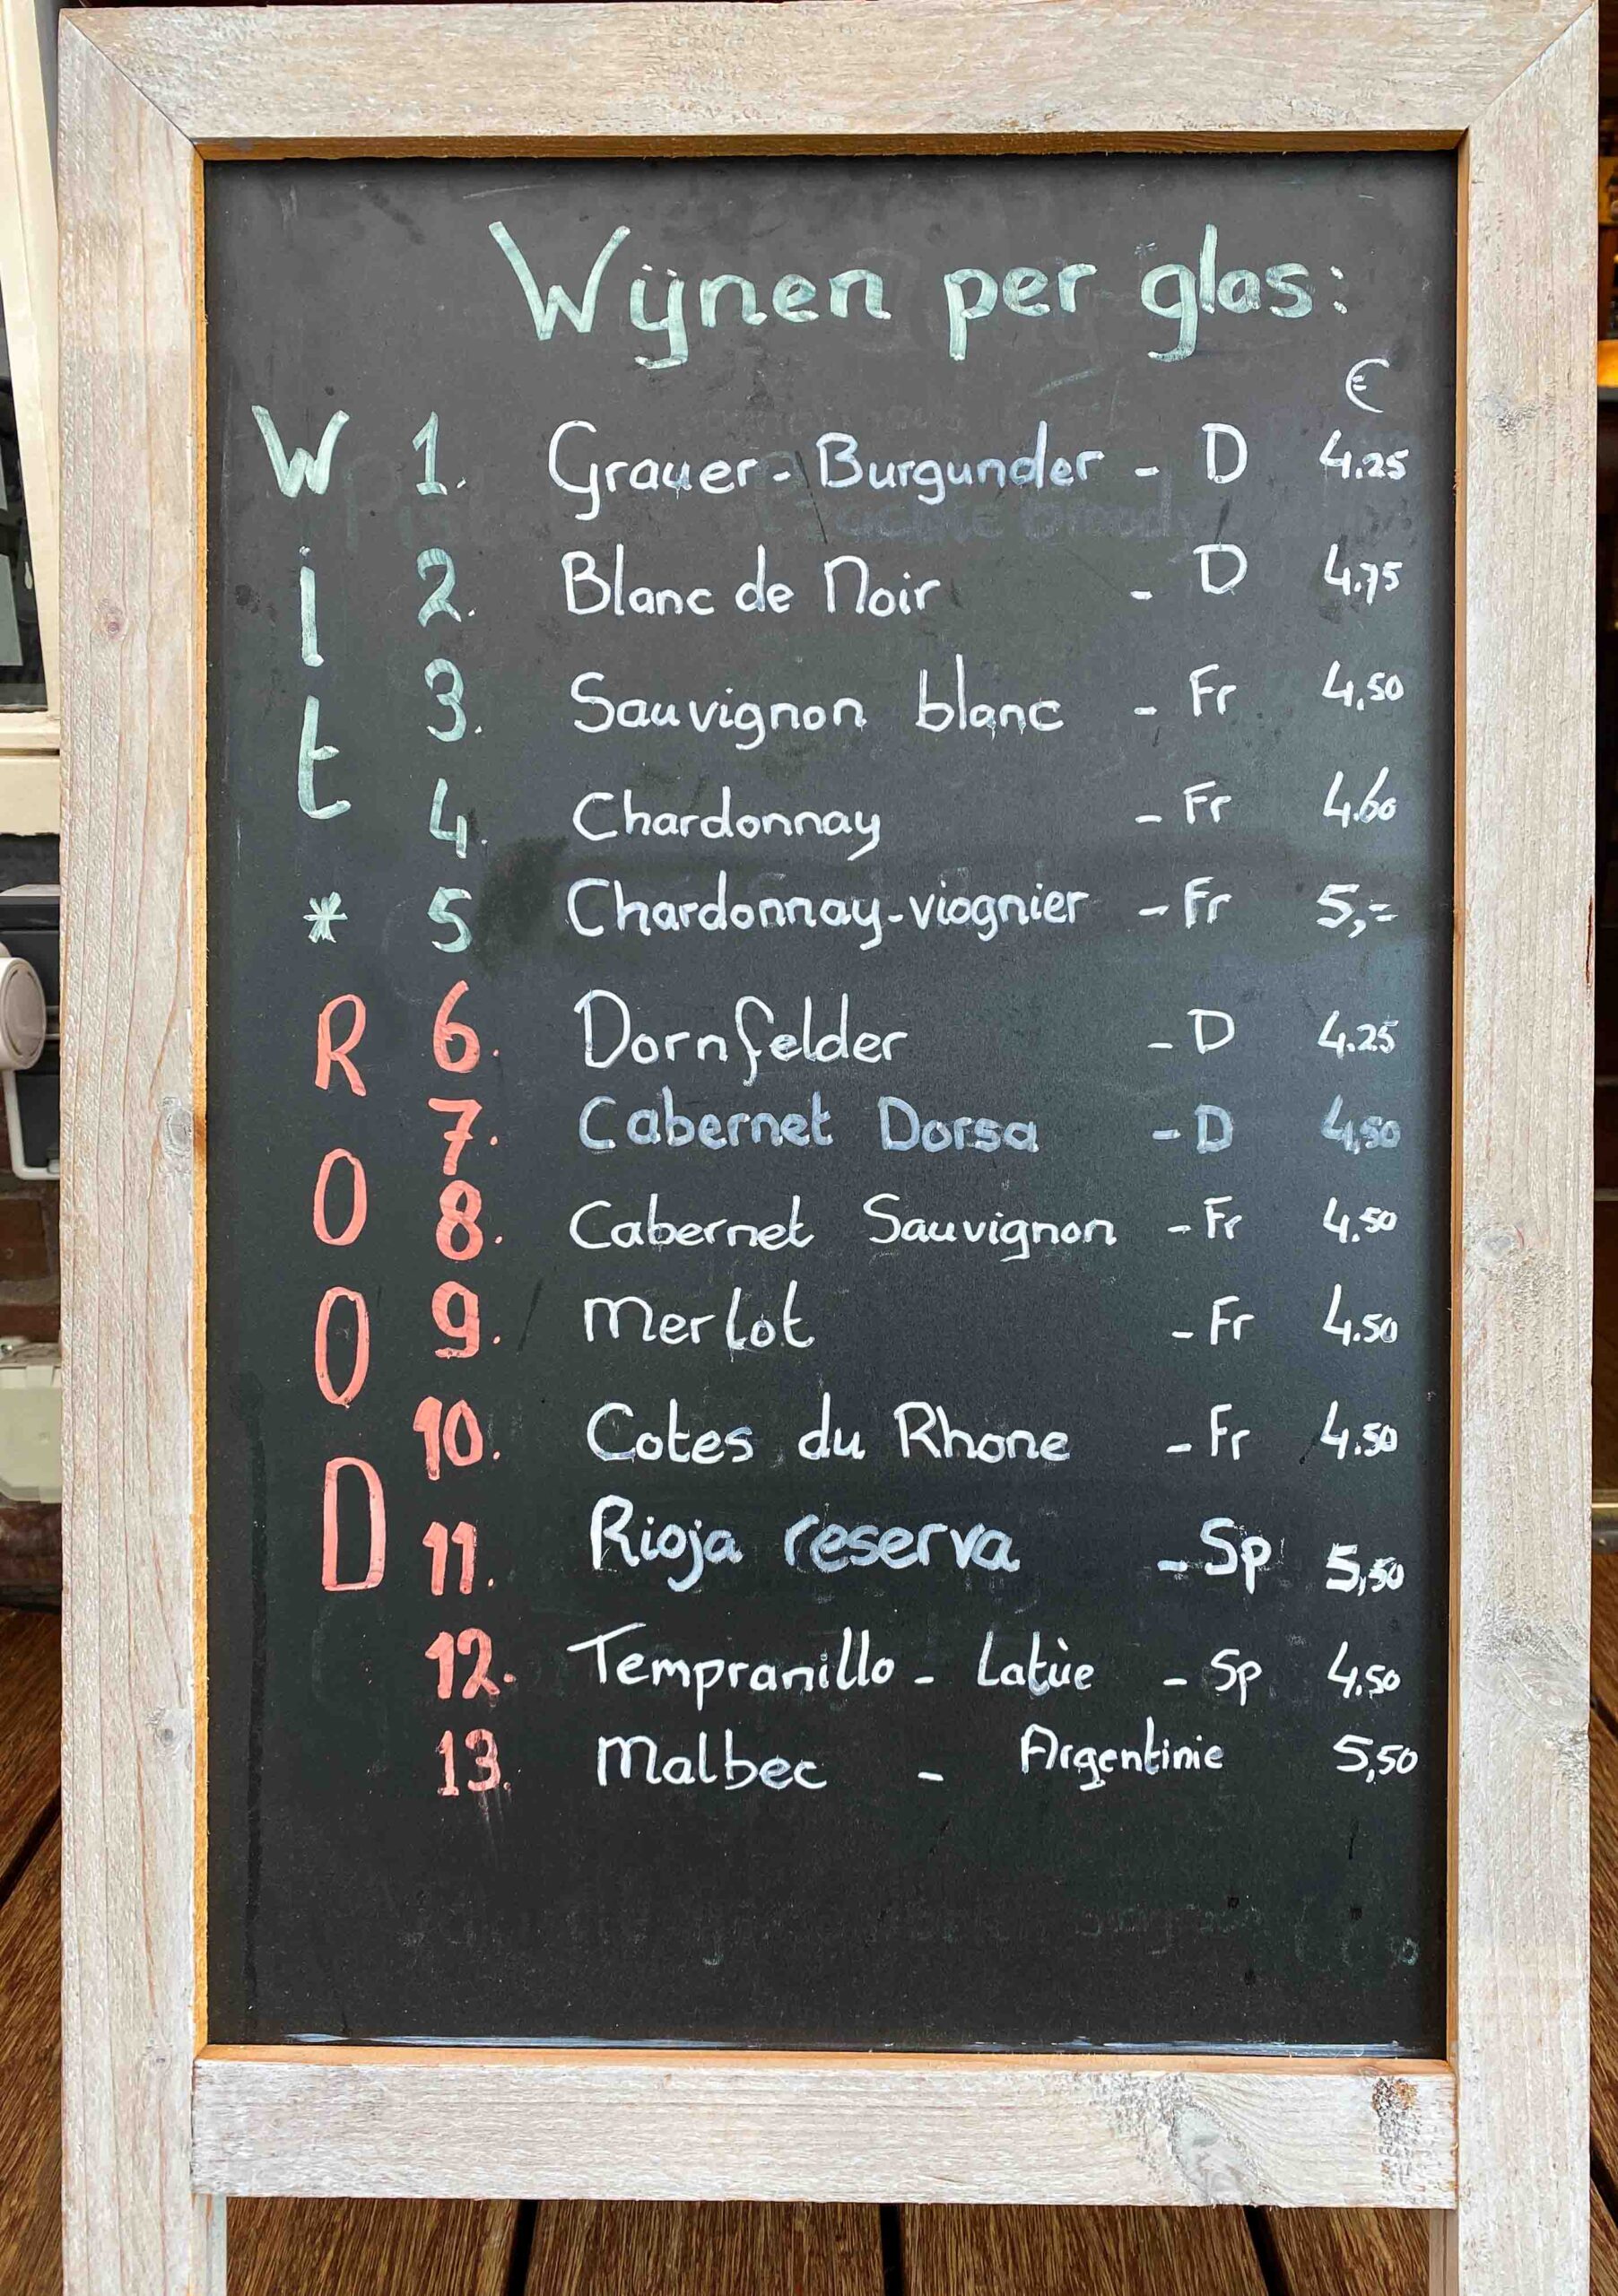 Wijnen per glas:
€
Wit * ROOD
1. Grauer-Burgunder - D 4.25
2. Blanc de Noir - D 4.75
3. Sauvignon blanc - Fr 4,50
4. Chardonnay - Fr 4.60
5 Chardonnay-viognier - Fr 5,=
6. Dornfelder - D 4.25
7. Cabernet Dorsa - D 4,50
8. Cabernet Sauvignon - Fr 4.50
9. Merlot - Fr 4.50
10. Cotes du Rhone - Fr 4.50
11. Rioja reserva - Sp 5,50
12. Tempranillo - Latùe - Sp 4,50
13. Malbec - Argentinie 5,50